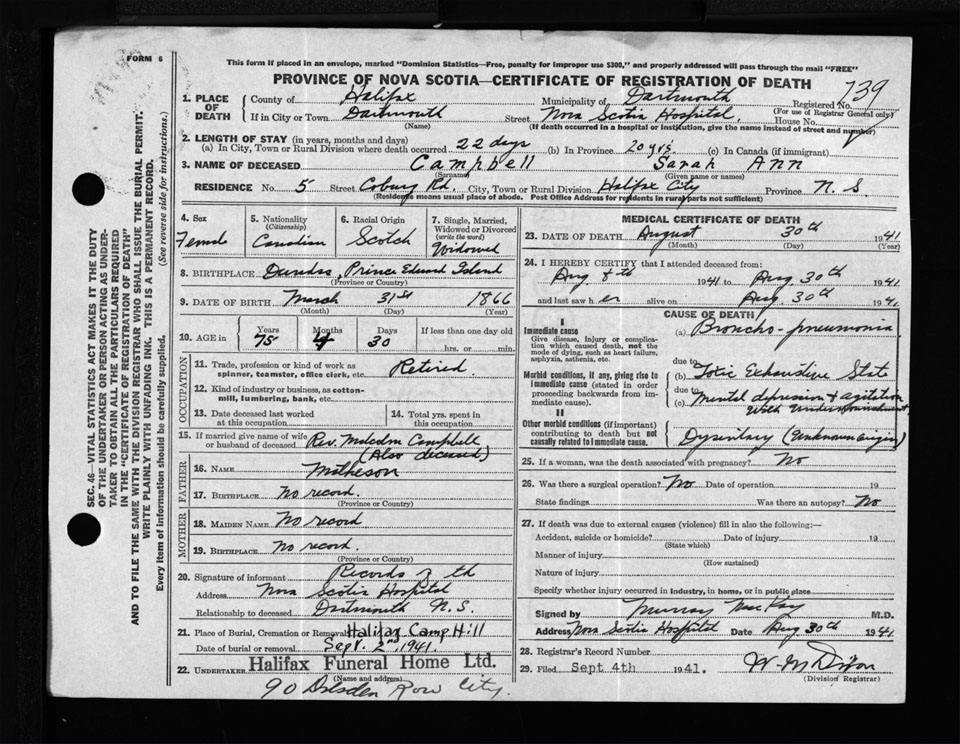 FORM 6
This form if placed in an envelope, marked "Dominion Statistics—Free, penalty for improper use $300," and properly addressed will pass through the mail "FREE"
PROVINCE OF NOVA SCOTIA—CERTIFICATE OF REGISTRATION OF DEATH
739
1. PLACE OF DEATH
County of Halifax Municipality of Dartmouth Registered No.
(For use of Registrar General only)
If in City or Town Dartmouth Street Nova Scotia Hospital House No.
(Name) (If death occurred in a hospital or institution, give the name instead of street and number)
2. LENGTH OF STAY (in years, months and days)
(a) In City, Town or Rural Division where death occurred 22 days (b) In Province 20 yrs. (c) In Canada (if immigrant)
3. NAME OF DECEASED Campbell Sarah Ann
(Surname) (Given name or names)
RESIDENCE No. 5 Street Coburg Rd. City, Town or Rural Division Halifax City Province N. S
(Residence means usual place of abode. Post Office Address for residents in rural parts not sufficient)
SEC. 46—VITAL STATISTICS ACT MAKES IT THE DUTY
OF THE UNDERTAKER OR PERSON ACTING AS UNDER-
TAKER TO OBTAIN ALL THE PARTICULARS REQUIRED
IN THE "CERTIFICATE OF REGISTRATION OF DEATH"
AND TO FILE THE SAME WITH THE DIVISION REGISTRAR WHO SHALL ISSUE THE BURIAL PERMIT.
WRITE PLAINLY WITH UNFADING INK. THIS IS A PERMANENT RECORD.
Every item of information should be carefully supplied. (See reverse side for instructions.)
4. Sex
Female
5. Nationality
(Citizenship)
Canadian
6. Racial Origin
Scotch
7. Single, Married, Widowed or Divorced
(write the word)
Widowed
8. BIRTHPLACE Dundas, Prince Edward Island
(Province or Country)
9. DATE OF BIRTH March 31st 1866
(Month) (Day) (Year)
10. AGE in
Years Months Days If less than one day old
75 4 30 hrs. or min.
OCCUPATION
11. Trade, profession or kind of work as spinner, teamster, office clerk, etc. Retired
12. Kind of industry or business, as cotton-mill, lumbering, bank, etc.
13. Date deceased last worked at this occupation
14. Total yrs. spent in this occupation
15. If married give name of wife or husband of deceased Rev. Malcolm Campbell
(Also deceased)
FATHER
16. NAME Matheson
17. BIRTHPLACE No record.
(Province or Country)
MOTHER
18. MAIDEN NAME No record
19. BIRTHPLACE No record.
(Province or Country)
20. Signature of informant Records of th
Address Nova Scotia Hospital
Relationship to deceased Dartmouth N.S.
21. Place of Burial, Cremation or Removal Halifax Camp Hill
Date of burial or removal Sept. 2nd, 1941.
22. UNDERTAKER Halifax Funeral Home Ltd.
(Name and address)
90 Dresden Row City.
MEDICAL CERTIFICATE OF DEATH
23. DATE OF DEATH August 30th 1941
(Month) (Day) (Year)
24. I HEREBY CERTIFY that I attended deceased from:
Aug 8th 1941 to Aug. 30th 1941.
and last saw her alive on Aug. 30th 1941.
CAUSE OF DEATH
I
Immediate cause
Give disease, injury or complication which caused death, not the mode of dying, such as heart failure, asphyxia, asthenia, etc.
(a) Broncho-pneumonia
Morbid conditions, if any, giving rise to immediate cause (stated in order proceeding backwards from immediate cause).
due to
(b) Toxic Exhaustive State
due to
(c) Mental depression & agitation
with undernourishment
II
Other morbid conditions (if important) contributing to death but not causally related to immediate cause.
Dysentary (Unknown origin)
25. If a woman, was the death associated with pregnancy? No
26. Was there a surgical operation? No Date of operation 19
State findings Was there an autopsy? No
27. If death was due to external causes (violence) fill in also the following:—
Accident, suicide or homicide? Date of injury 19
(State which)
Manner of injury
(How sustained)
Nature of injury
Specify whether injury occurred in industry, in home, or in public place
Signed by Murray MacKay M.D.
Address Nova Scotia Hospital Date Aug 30th 1941.
28. Registrar's Record Number
29. Filed Sept 4th 1941. W. M. Dixon
(Division Registrar)